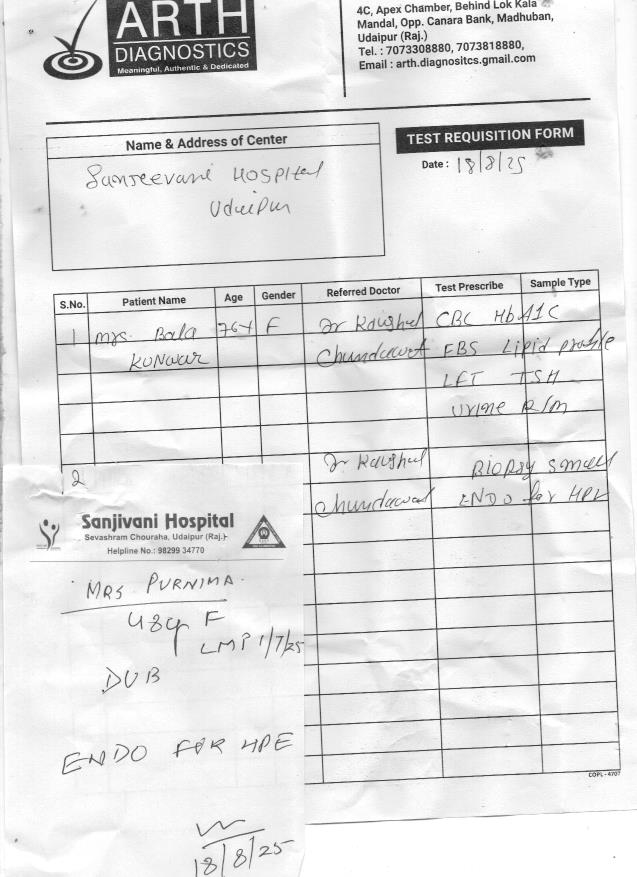 ARTH
DIAGNOSTICS
Meaningful, Authentic & Dedicated
4C, Apex Chamber, Behind Lok Kala
Mandal, Opp. Canara Bank, Madhuban,
Udaipur (Raj.)
Tel. : 7073308880, 7073818880,
Email : arth.diagnositcs.gmail.com
Name & Address of Center
Sanjeevani HOSPITal
Udaipur
TEST REQUISITION FORM
Date : 18/8/25
S.No. Patient Name Age Gender Referred Doctor Test Prescribe Sample Type
1 mrs. Bala 76y F Dr Kaushal CBC HbA1C
KUNWAR Chundawat FBS Lipid profile
LFT TSH
Urine R/m
2 Dr Kaushal BIOPSY small
Chundawat ENDO for HPE
Sanjivani Hospital
Sevashram Chouraha, Udaipur (Raj.)-
Helpline No.: 98299 34770
MRS PURNIMA
48y F
LMP 1/7/25
DUB
ENDO FOR HPE
18/8/25
COPL - 4707